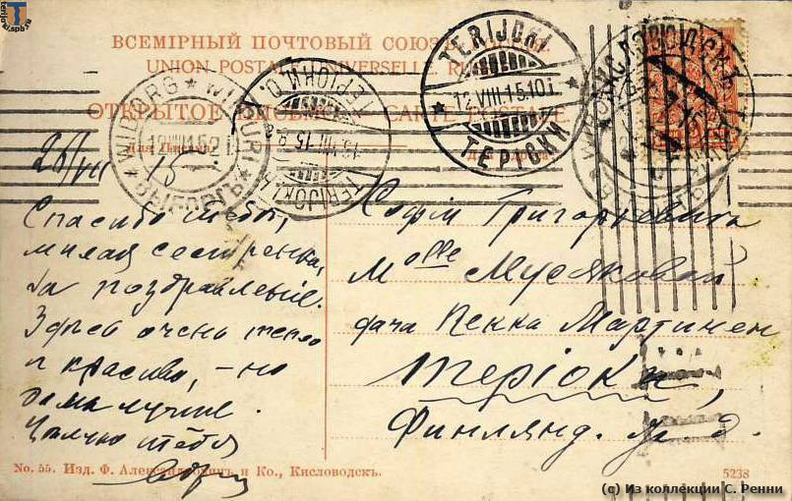 terijoki.spb.ru
ВСЕМІРНЫЙ ПОЧТОВЫЙ СОЮЗЪ.
UNION POSTALE UNIVERSELLE. RUSSIE
ОТКРЫТОЕ ПИСЬМО. CARTE POSTALE.
TERIJOKI
12.VIII.15.10
ТЕРІОКИ
WIBORG * WIIPURI *
ВЫБОРГЪ
TERIJOKI
ТЕРІОКИ
КИСЛОВОДСКЪ
Для письма
26/VII 15
Спасибо тебѣ,
милая сестренка,
за поздравленіе.
Здѣсь очень тепло
и красиво, – но
дома лучше.
Цѣлую тебя
Софіи Григорьевнѣ
M<sup>elle</sup> Мусяковой
дача Пекка Мартинен
Теріоки,
Финлянд. ж. д.
No. 55. Изд. Ф. Александровичъ и Ко., Кисловодскъ.
5238
(c) Из коллекции С. Ренни